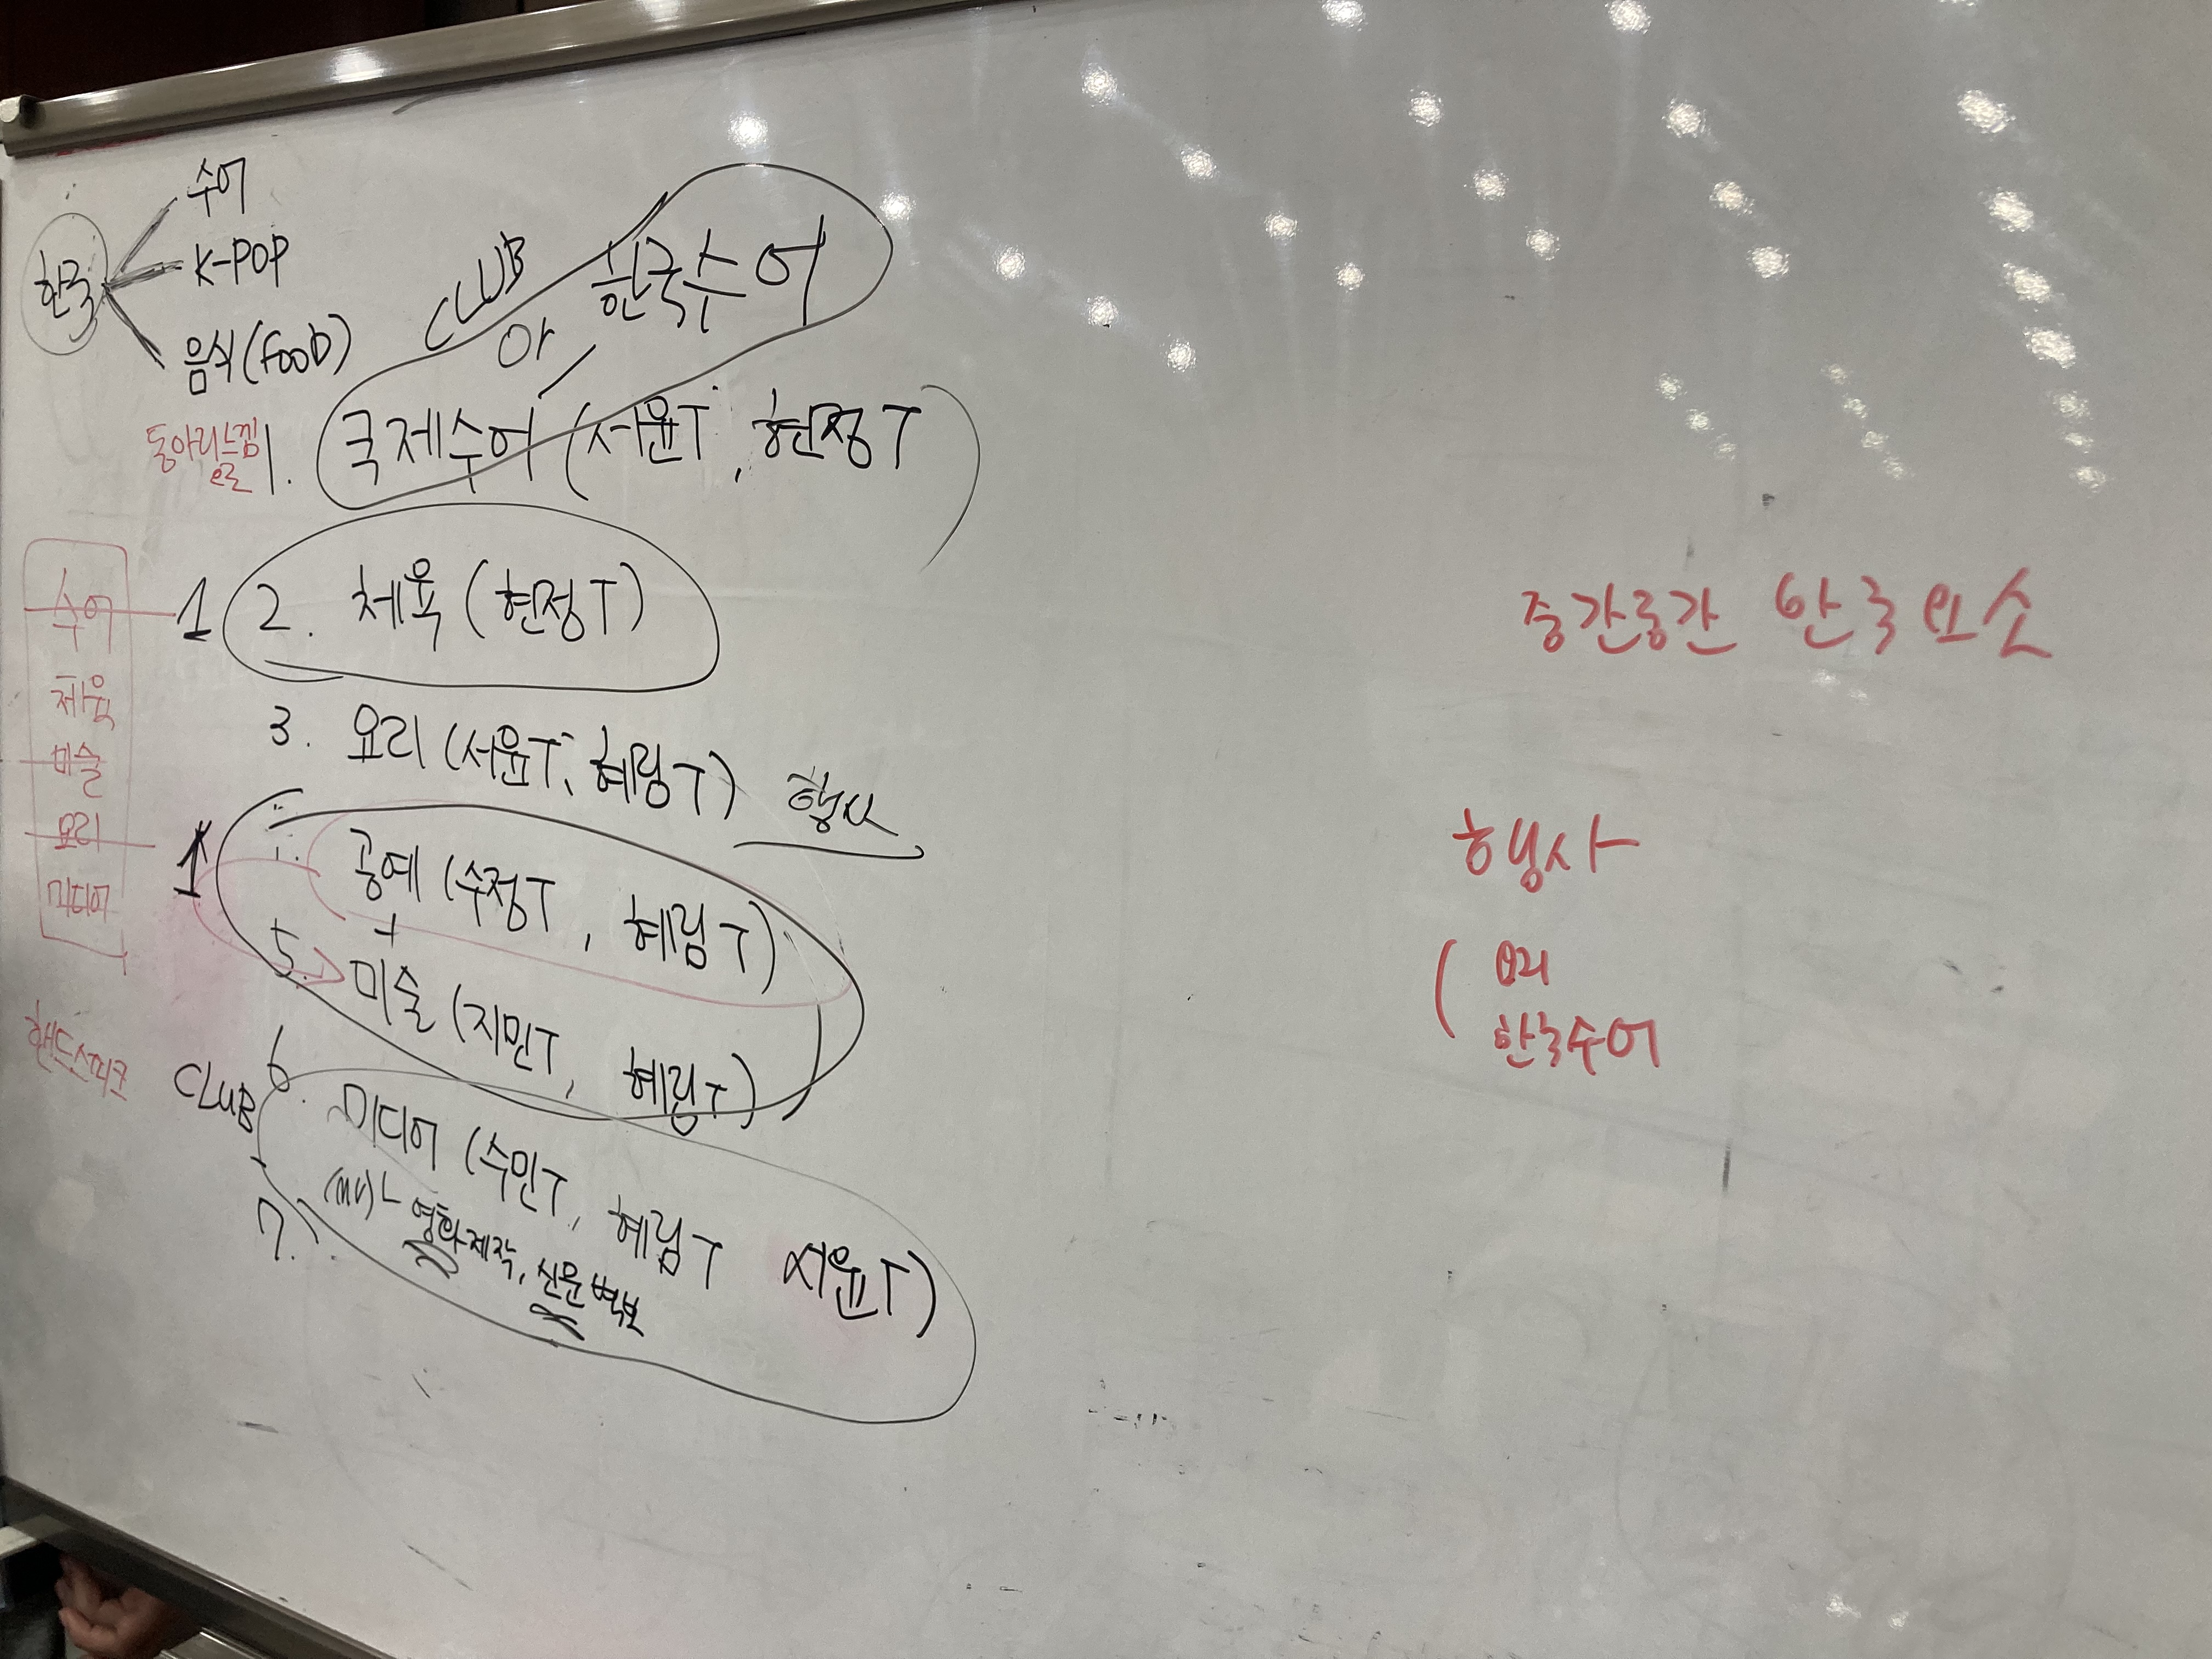 한국
수어
K-POP
음식(FOOD)
CLUB
or 한국수어
동아리느낌
으로
1. 국제수어 (서윤T, 현정T)
1
2. 체육 (현정T)
3. 요리 (서윤T, 혜림T) 행사
1
공예 (수정T, 혜림T)
+
5. 미술 (지민T, 혜림T)
CLUB
6. 미디어 (수민T, 혜림T 서윤T)
(MV) 영화제작, 신문
7.
수어
체육
미술
요리
미디어
핸드스피크
중간중간 한국요소
행사
( 요리
한국수어